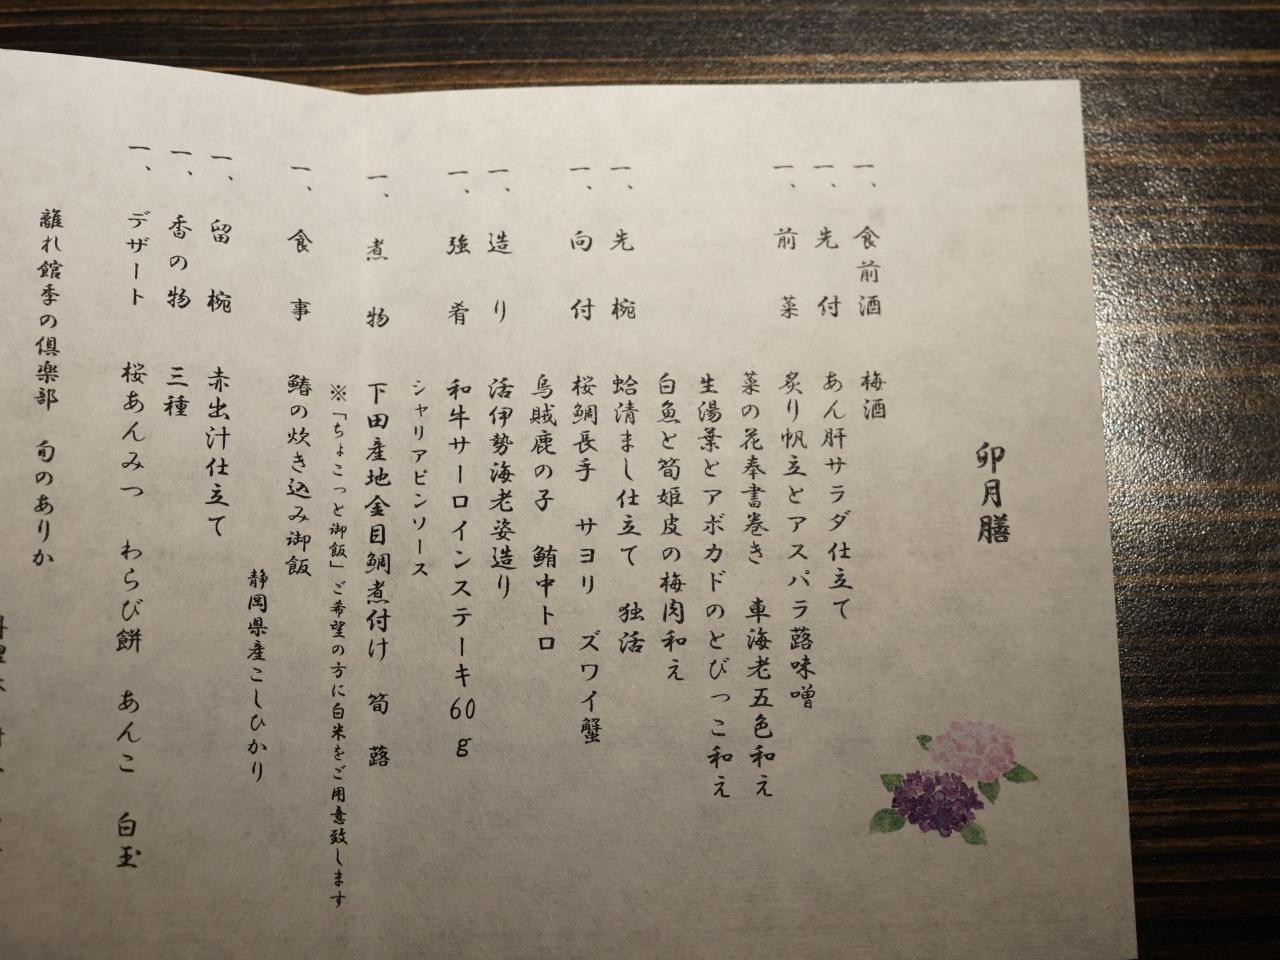 卯月膳
一、食前酒 梅酒
一、先付 あん肝サラダ仕立て
一、前菜 炙り帆立とアスパラ蕗味噌
菜の花奉書巻き 車海老五色和え
生湯葉とアボカドのとびっこ和え
白魚と筍姫皮の梅肉和え
一、先椀 蛤清まし仕立て 独活
一、向付 桜鯛長手 サヨリ ズワイ蟹
烏賊鹿の子 鮪中トロ
一、造り 活伊勢海老姿造り
一、強肴 和牛サーロインステーキ60g
シャリアピンソース
一、煮物 下田産地金目鯛煮付け 筍 蕗
※「ちょこっと御飯」ご希望の方に白米をご用意致します
一、食事 鰆の炊き込み御飯
静岡県産こしひかり
一、留椀 赤出汁仕立て
一、香の物 三種
一、デザート 桜あんみつ わらび餅 あんこ 白玉
離れ館季の倶楽部 旬のありか